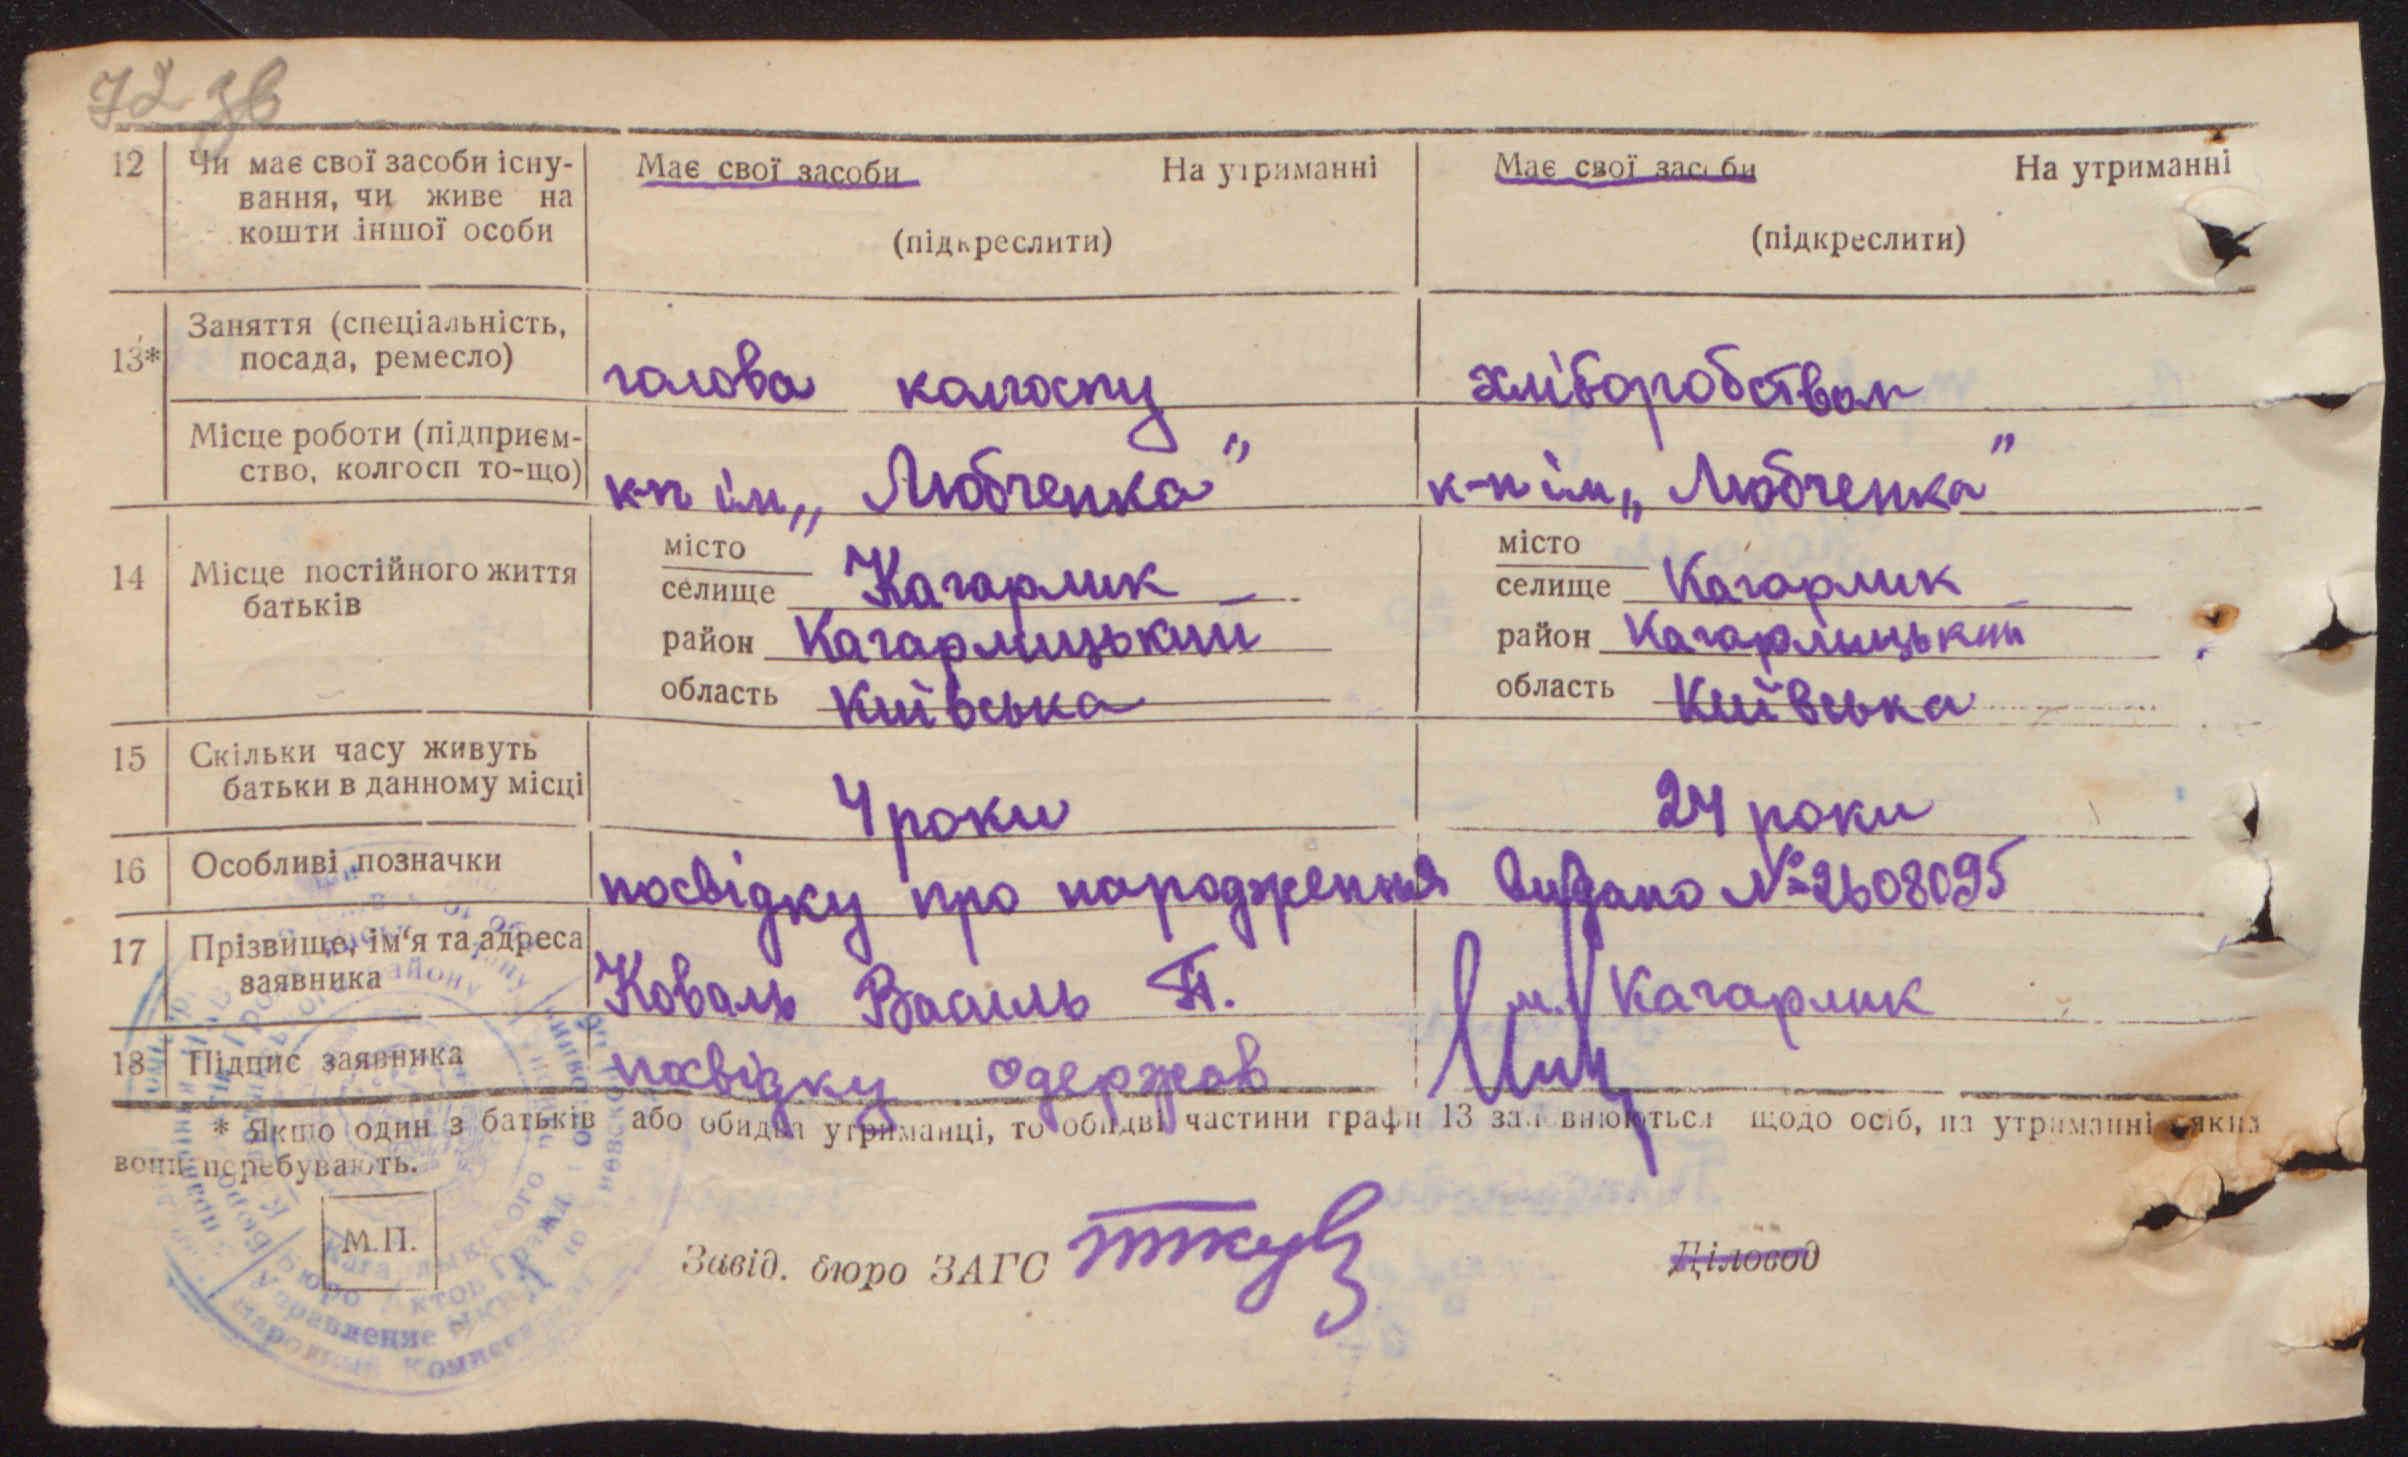 72 зв
12 Чи має свої засоби існу- Має свої засоби На утриманні Має свої засоби На утриманні
вання, чи живе на
кошти іншої особи (підкреслити) (підкреслити)
Заняття (спеціальність,
13* посада, ремесло) голова колгоспу хліборобством
Місце роботи (підприєм-
ство, колгосп то-що) к-п ім „Любченка" к-п ім „Любченка"
місто місто
14 Місце постійного життя селище Кагарлик селище Кагарлик
батьків район Кагарлицький район Кагарлицький
область Київська область Київська
15 Скільки часу живуть
батьки в данному місці 4 роки 24 роки
16 Особливі позначки посвідку про народження видано № 2608095
17 Прізвище, ім'я та адреса
заявника Коваль Василь П. м. Кагарлик
18 Підпис заявника посвідку одержав
* Якщо один з батьків або обидва утриманці, то обидві частини графи 13 заповнюються щодо осіб, на утриманні яких
вони перебувають.
М.П.
Завід. бюро ЗАГС Діловод